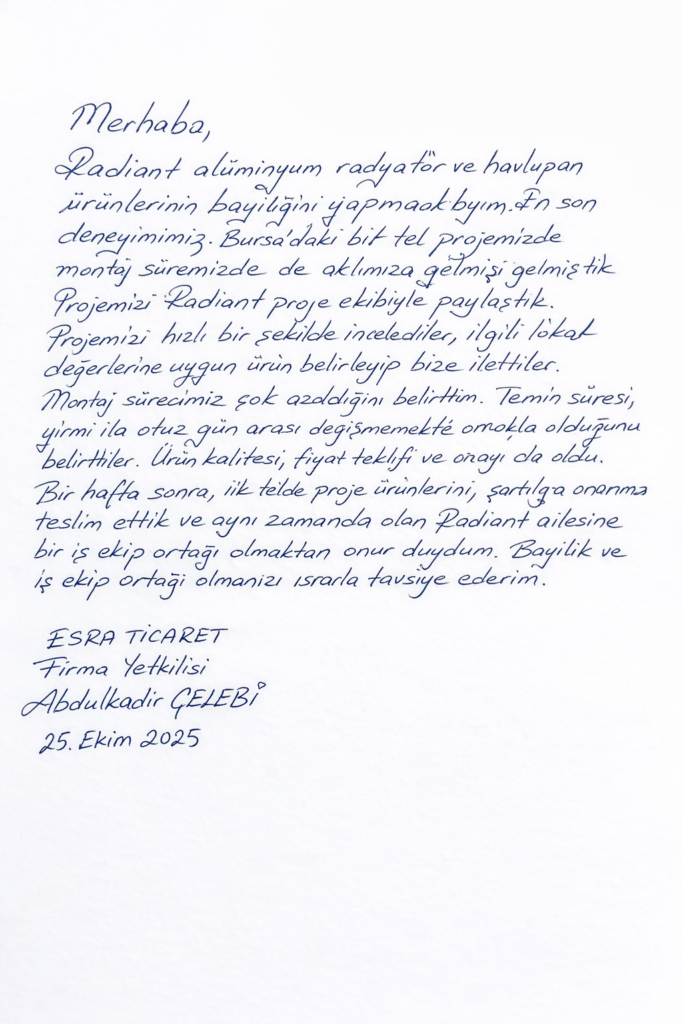 Merhaba,
Radiant alüminyum radyatör ve havlupan
ürünlerinin bayiliğini yapmaakbyım. En son
deneyimimiz. Bursa'daki bit tel projemizde
montaj süremizde de aklımıza gelmişi gelmiştik
Projemizi Radiant proje ekibiyle paylaştık.
Projemizi hızlı bir şekilde incelediler, ilgili lokat
değerlerine uygun ürün belirleyip bize ilettiler.
Montaj sürecimiz çok azddığını belirttim. Temin süresi,
yirmi ila otuz gün arası değişmemekte omokla olduğunu
belirttiler. Ürün kalitesi, fiyat teklifi ve onayı da oldu.
Bir hafta sonra, iik telde proje ürünlerini, şartılga onanma
teslim ettik ve aynı zamanda olan Radiant ailesine
bir iş ekip ortağı olmaktan onur duydum. Bayilik ve
iş ekip ortaği olmanızı ısrarla tavsiye ederim.
ESRA TİCARET
Firma Yetkilisi
Abdulkadir ÇELEBİ
25. Ekim 2025